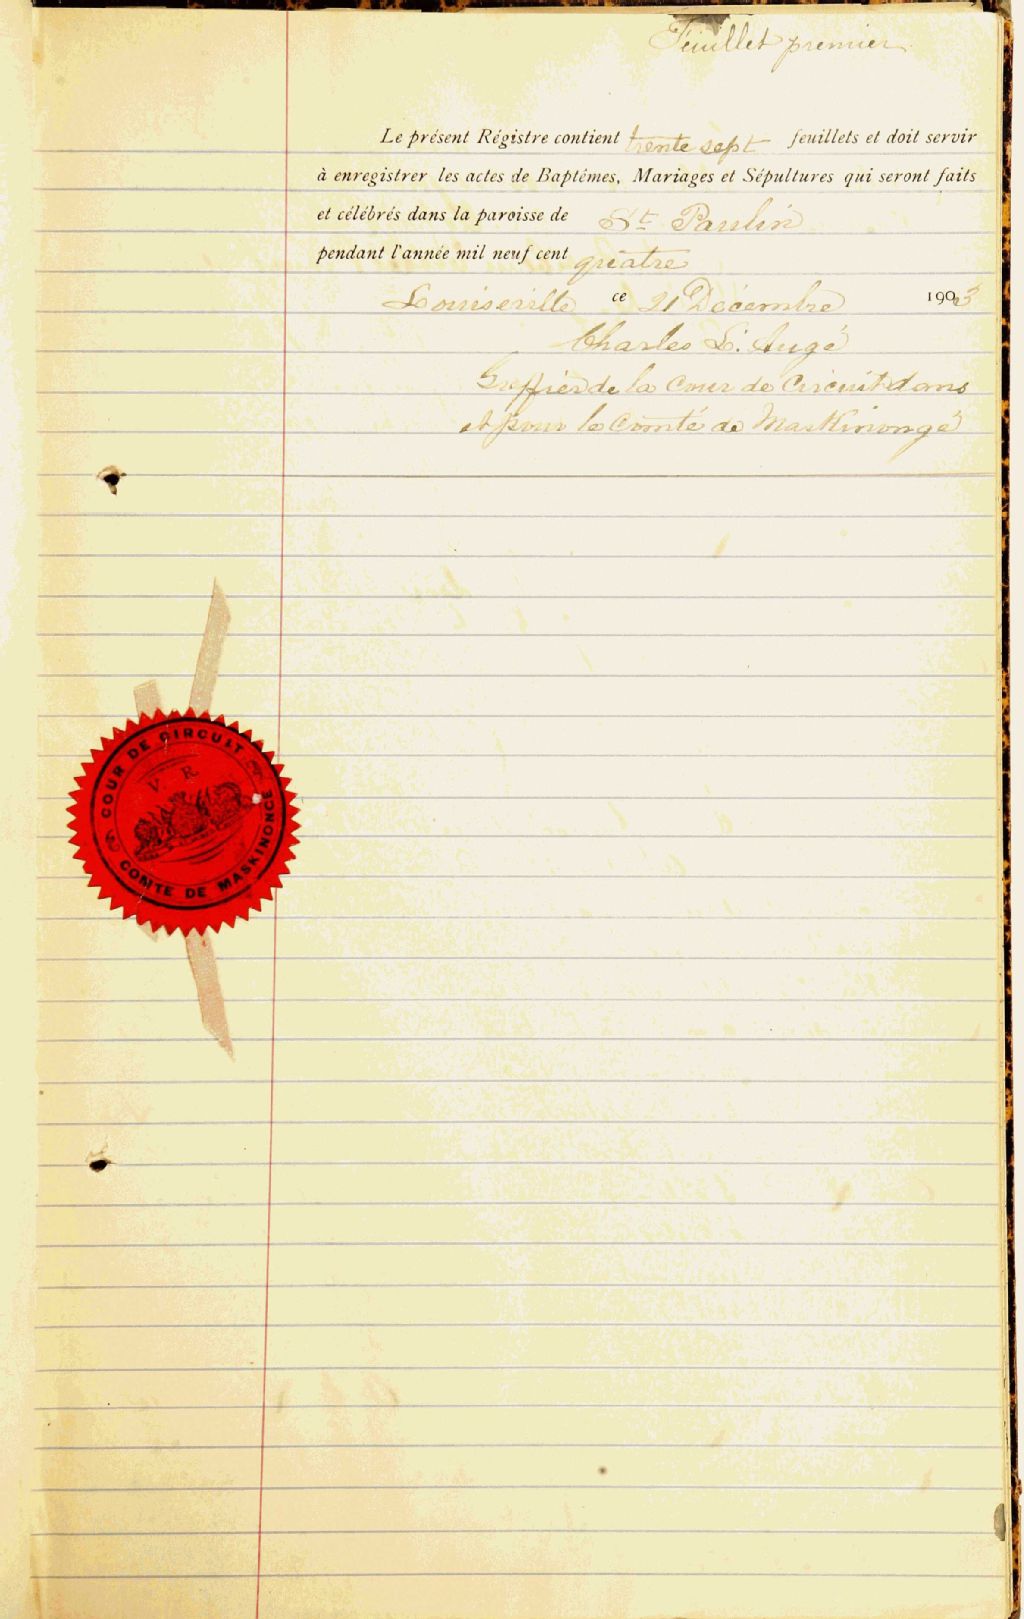 Feuillet premier
Le présent Régistre contient trente sept feuillets et doit servir
à enregistrer les actes de Baptêmes, Mariages et Sépultures qui seront faits
et célébrés dans la paroisse de St Paulin
pendant l'année mil neuf cent quatre
Louiseville ce 21 Décembre 1903
Charles L. Augé
Greffier de la Cour de Circuit dans
et pour le Comté de Maskinongé
COUR DE CIRCUIT
V R
COMTE DE MASKINONGE